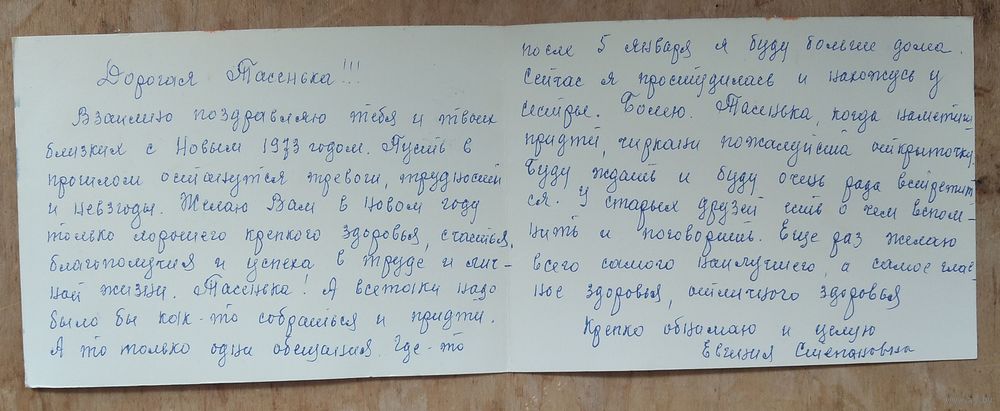 Дорогая Тасенька!!!
Взаимно поздравляю тебя и твоих
близких с Новым 1973 годом. Пусть в
прошлом останутся тревоги, трудности
и невзгоды. Желаю Вам в новом году
только хорошего крепкого здоровья, счастья,
благополучия и успеха в труде и лич-
ной жизни. Тасенька! А всетаки надо
было бы как-то собраться и придти.
А то только одни обещания. Где-то
после 5 января я буду больше дома.
Сейчас я простудилась и нахожусь у
сестры. Болею. Тасенька, когда наметишь
придти, чиркани пожалуйста открыточку.
Буду ждать и буду очень рада встретит-
ся. У старых друзей есть о чем вспом-
нить и поговорить. Еще раз желаю
всего самого наилучшего, а самое глав-
ное здоровья, отличного здоровья
Крепко обнимаю и целую
Евгения Степановна